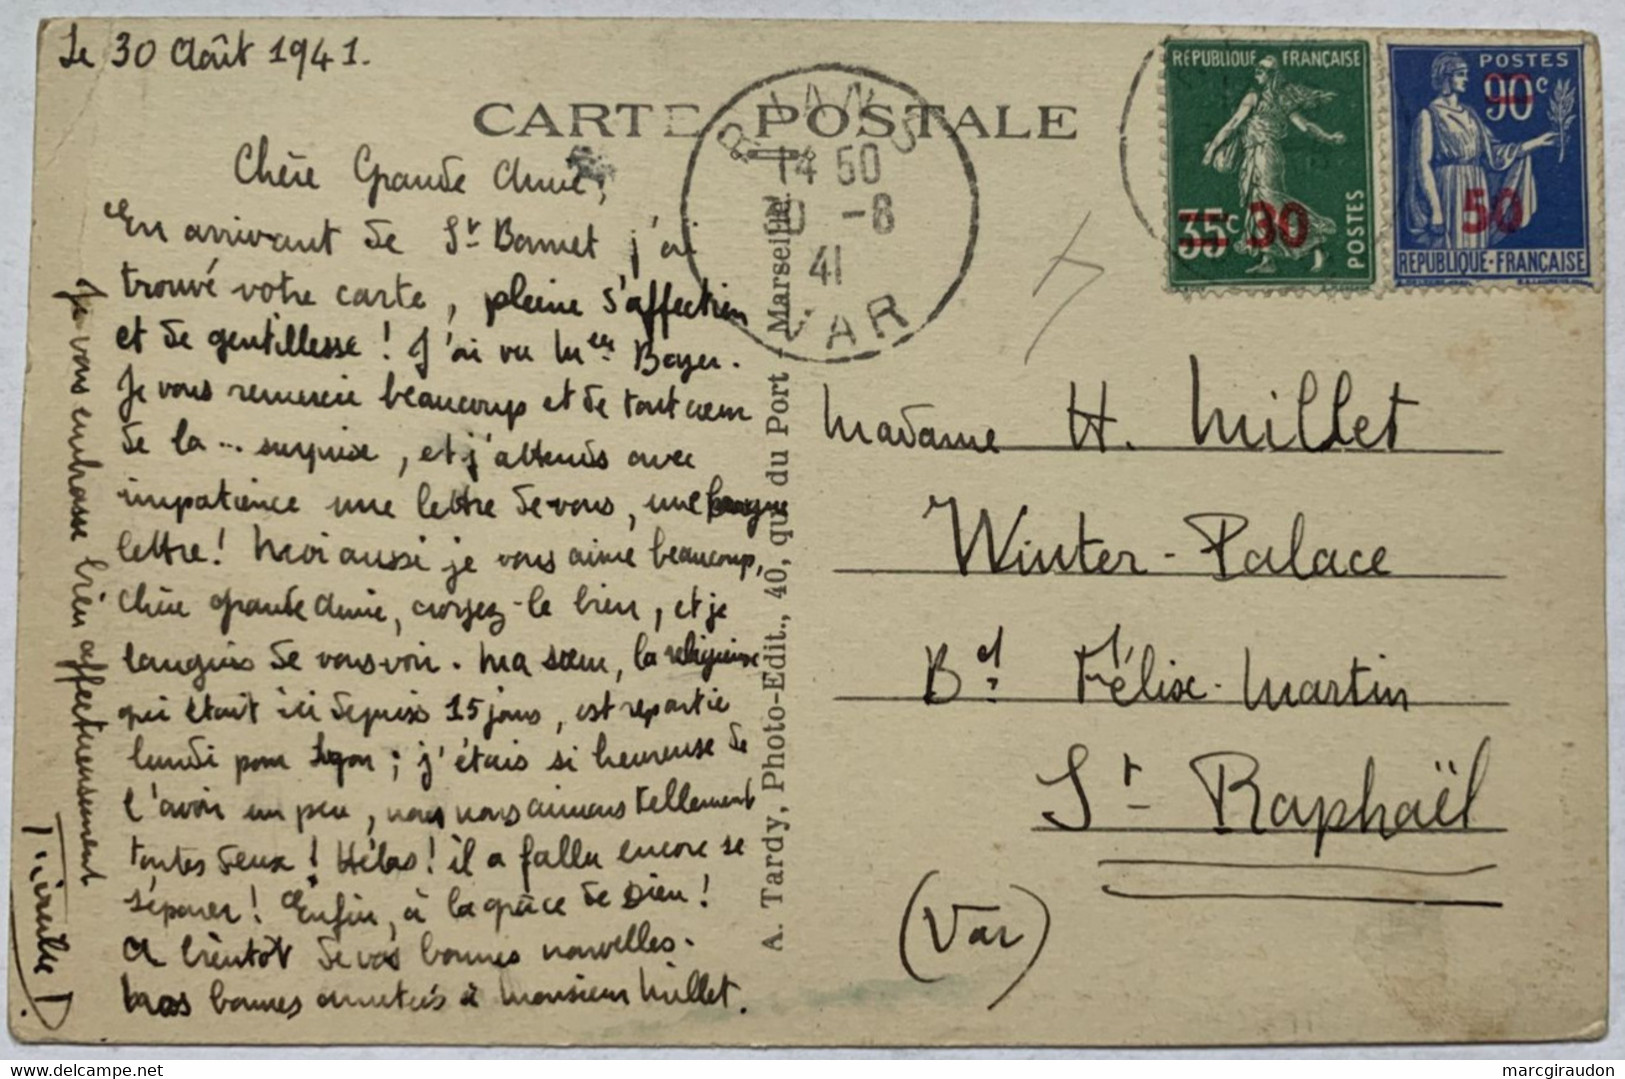 Le 30 Août 1941.
CARTE POSTALE
RIANS
14 50
30 -8
41
VAR
REPUBLIQUE FRANÇAISE
35c 30
POSTES
POSTES
90c
50
REPUBLIQUE-FRANÇAISE
Chère Grande Amie,
En arrivant de St Bonnet j'ai
trouvé votre carte, pleine d'affection
et de gentillesse ! J'ai vu Boyer.
Je vous remercie beaucoup et de tout cœur
de la ... surprise, et j'attends avec
impatience une lettre de vous, une longue
lettre ! Moi aussi je vous aime beaucoup,
chère grande amie, croyez-le bien, et je
languis de vous voir. Ma sœur, la religieuse
qui était ici depuis 15 jours, est repartie
lundi pour Lyon ; j'étais si heureuse de
l'avoir un peu, nous nous aimons tellement
toutes deux ! Hélas ! il a fallu encore se
séparer ! Enfin, à la grâce de Dieu !
A bientôt de vos bonnes nouvelles.
bonnes amitiés à Monsieur Millet.
Je vous embrasse bien affectueusement
A. Tardy, Photo-Edit., 40, quai du Port - Marseille
Madame H. Millet
Winter-Palace
Bd Félix-Martin
St Raphaël
(Var)
marcgiraudon